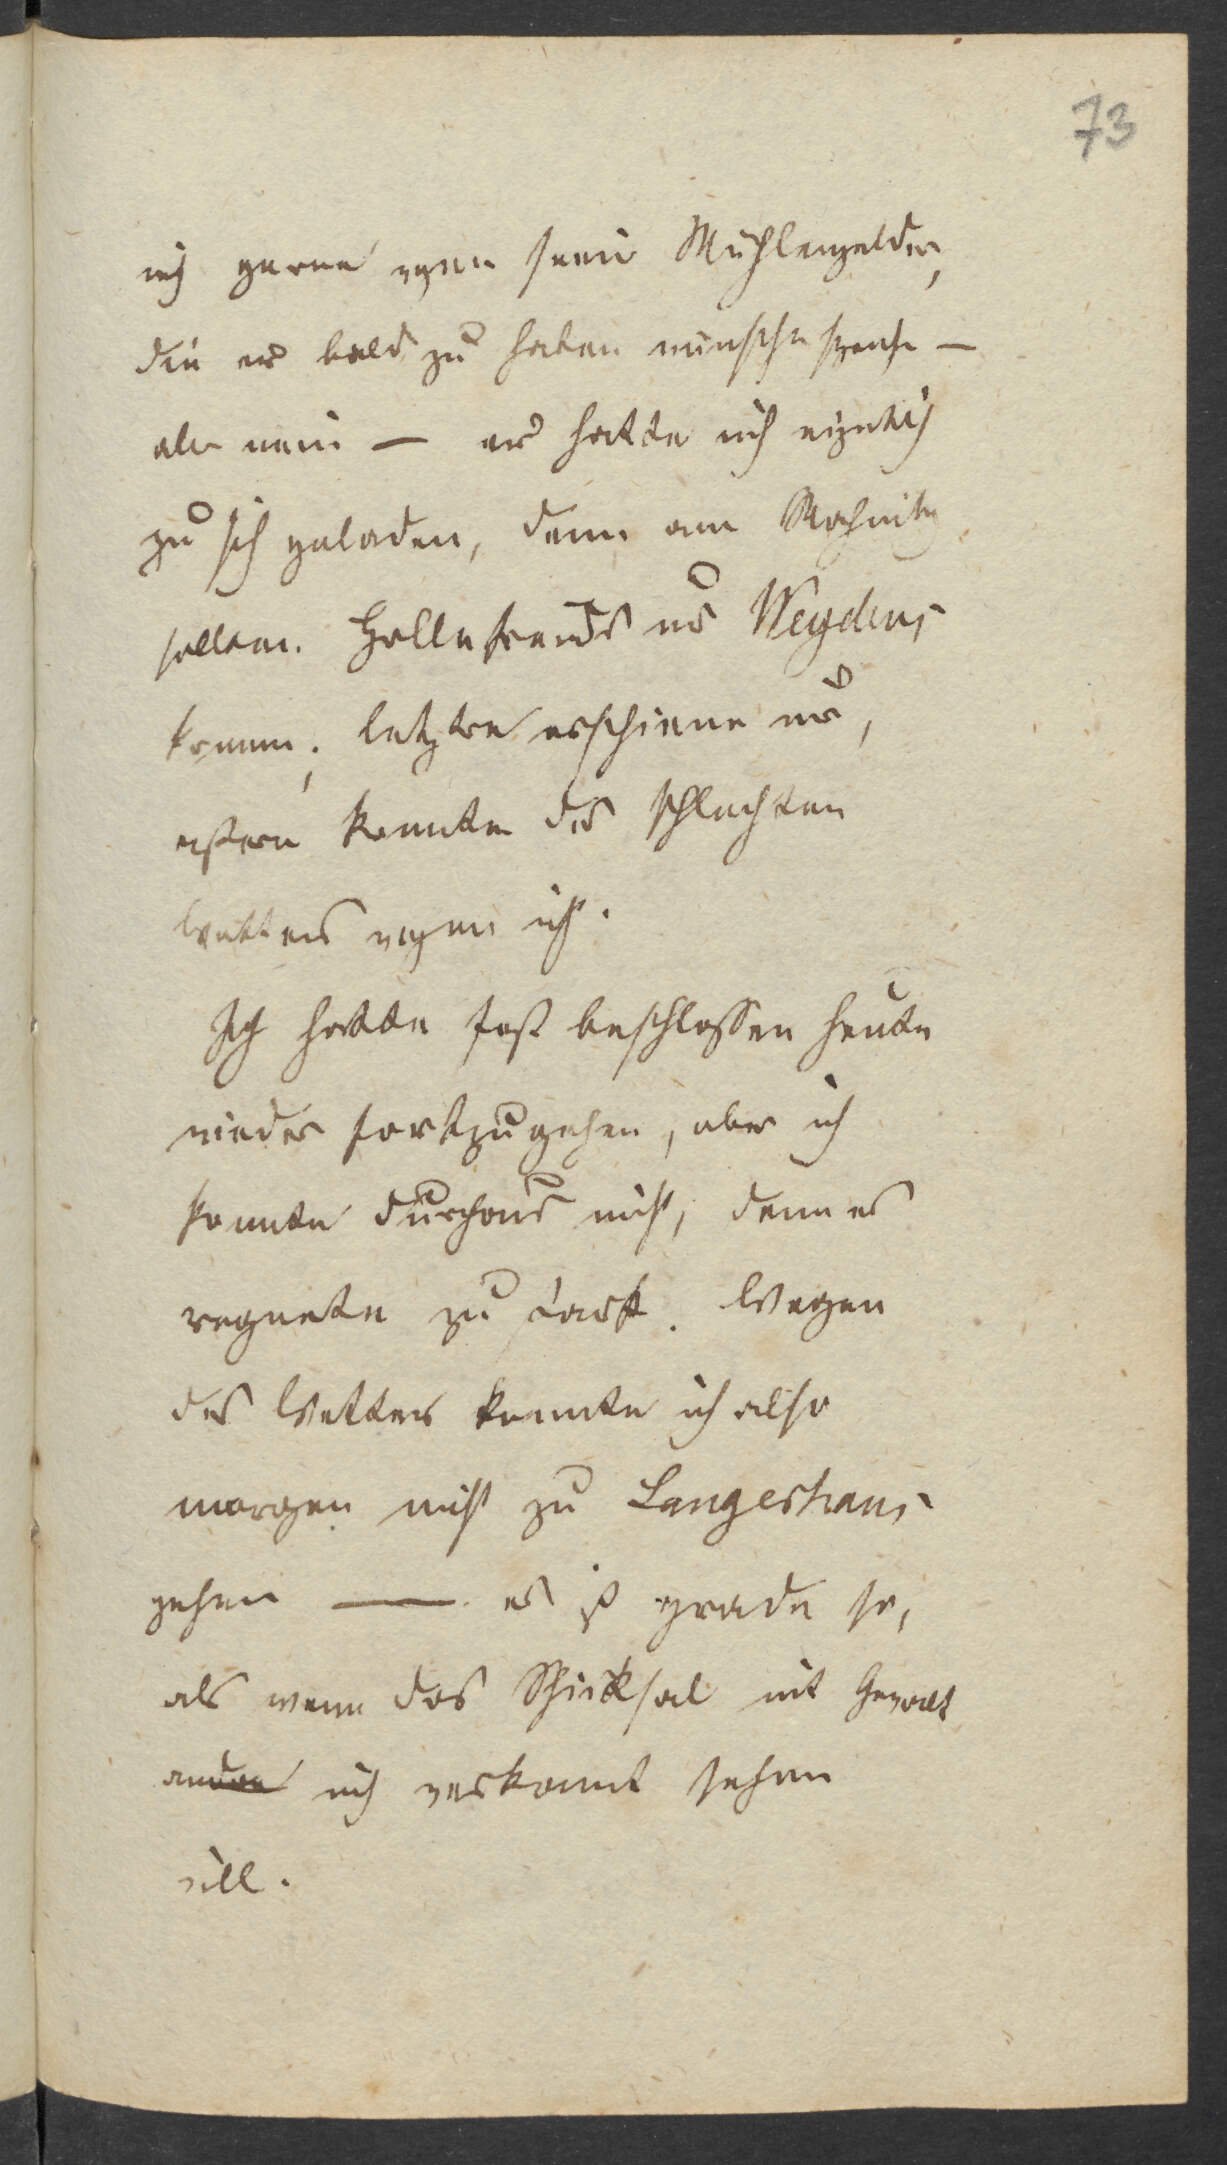 73
mich gerne wegen seiner Mühlengelder,
die er bald zu haben wünschte sprach —
aber nein — er hatte mich eigentlich
zu sich geladen, denn am Nachmittag
sollten Weydens
kommen; letztre erschienen nur,
erstere konnten des schlechten
Wetters wegen nicht.
Ich hatte fast beschlossen heute
wieder fortzugehen, aber ich
konnte durchaus nicht, denn es
regnete zu stark. Wegen
des Wetters konnte ich also
morgen nicht zu Langeshans
gehen — es ist grade so,
als wenn das Schicksal mit Gewalt
mich verkannt sehen
will.